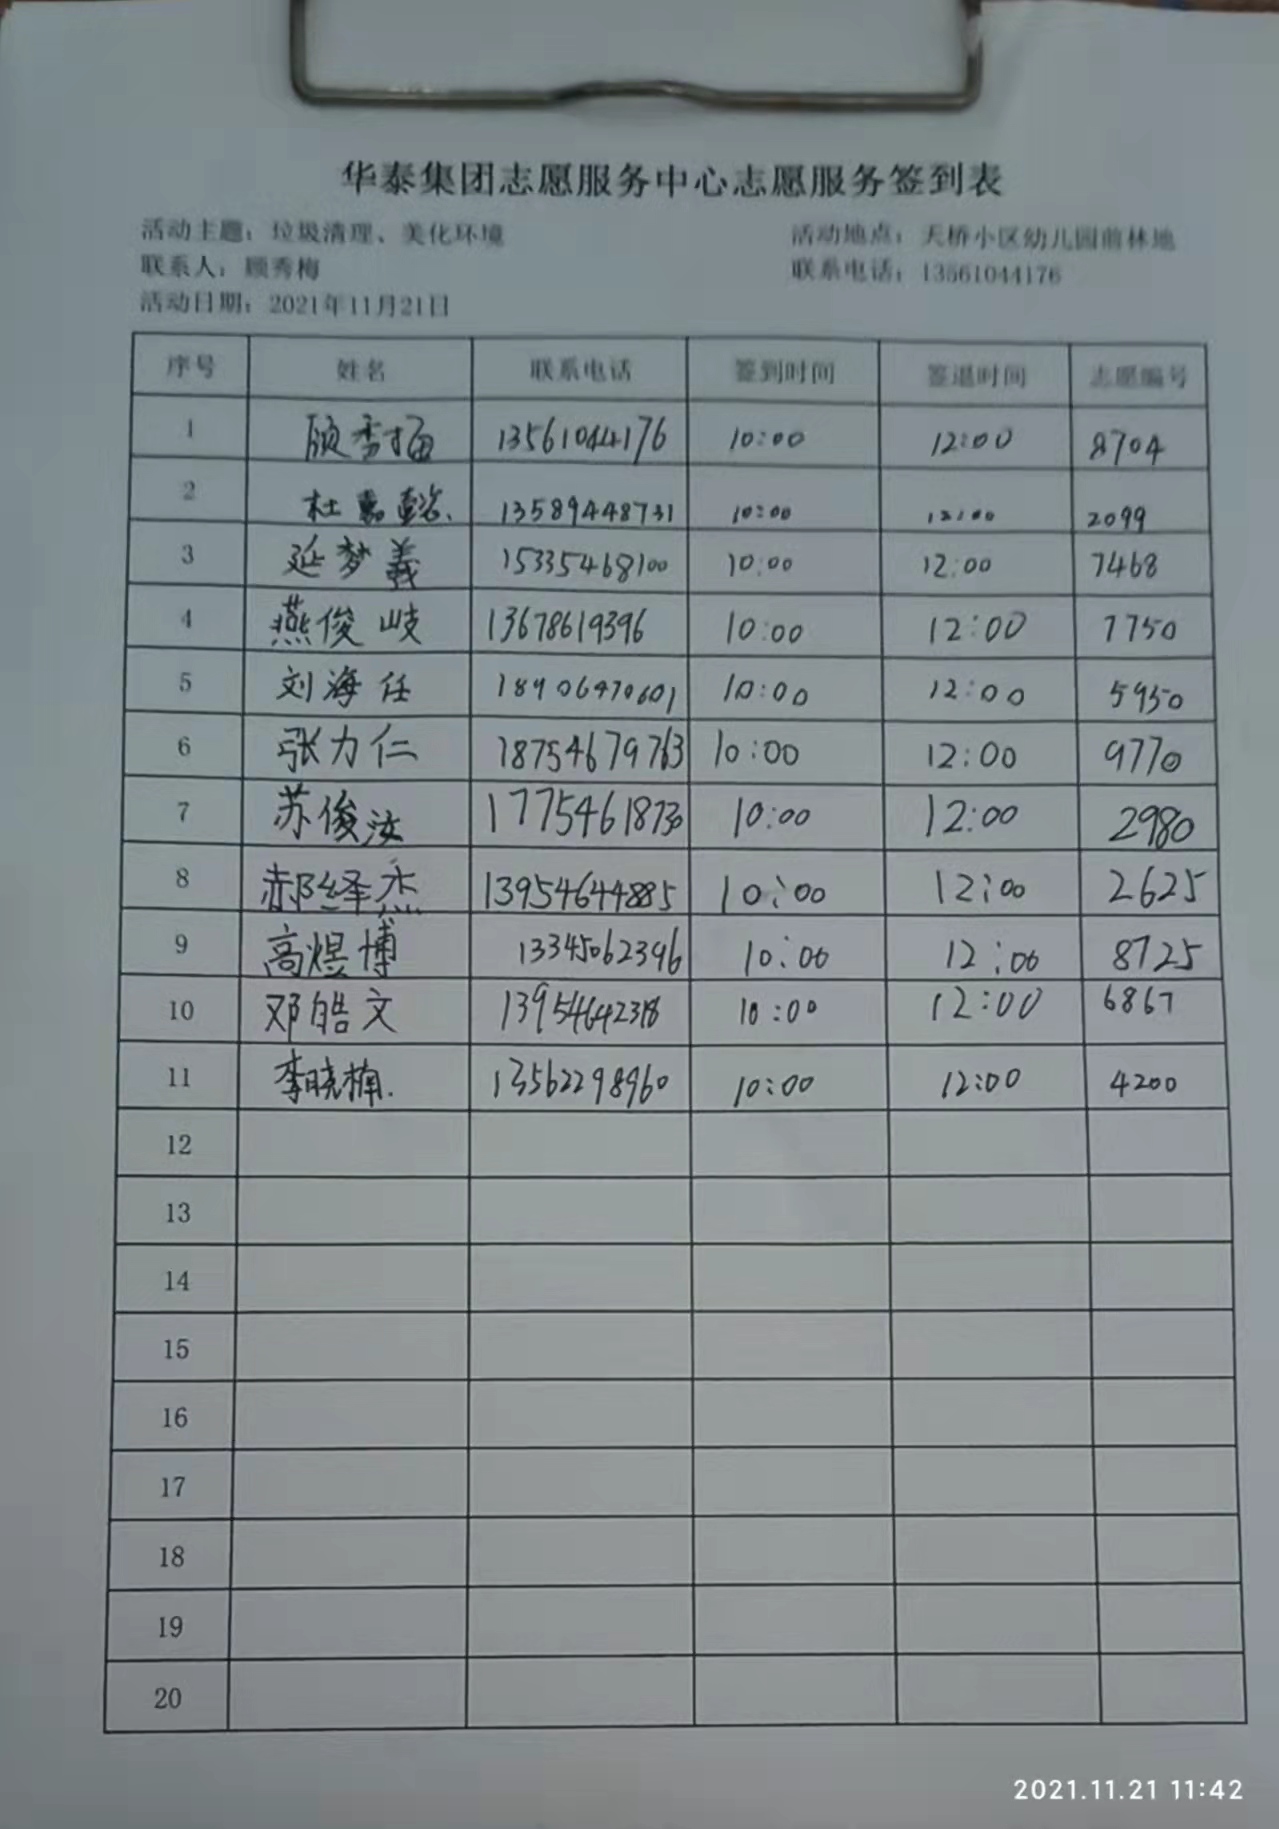 华泰集团志愿服务中心志愿服务签到表
活动主题：垃圾清理、美化环境 活动地点：天桥小区幼儿园前林地
联系人：顾秀梅 联系电话：13561044176
活动日期：2021年11月21日
序号 姓名 联系电话 签到时间 签退时间 志愿编号
1 顾秀梅 13561044176 10:00 12:00 8704
2 杜 13589448731 10:00 12:00 2099
3 延梦義 15335468100 10:00 12:00 7468
4 燕俊岐 13678619396 10:00 12:00 7750
5 刘海任 18906470601 10:00 12:00 5950
6 张力仁 18754679763 10:00 12:00 9770
7 苏俊汝 17754618730 10:00 12:00 2980
8 郝绎杰 13954644885 10:00 12:00 2625
9 高煜博 13345062396 10:00 12:00 8725
10 邓皓文 13954642318 10:00 12:00 6867
11 李晓楠. 13562298960 10:00 12:00 4200
12
13
14
15
16
17
18
19
20
2021.11.21 11:42